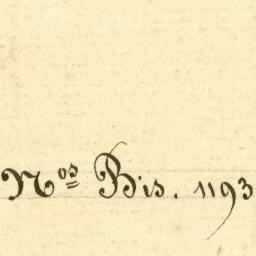 Nos Bis. 1193